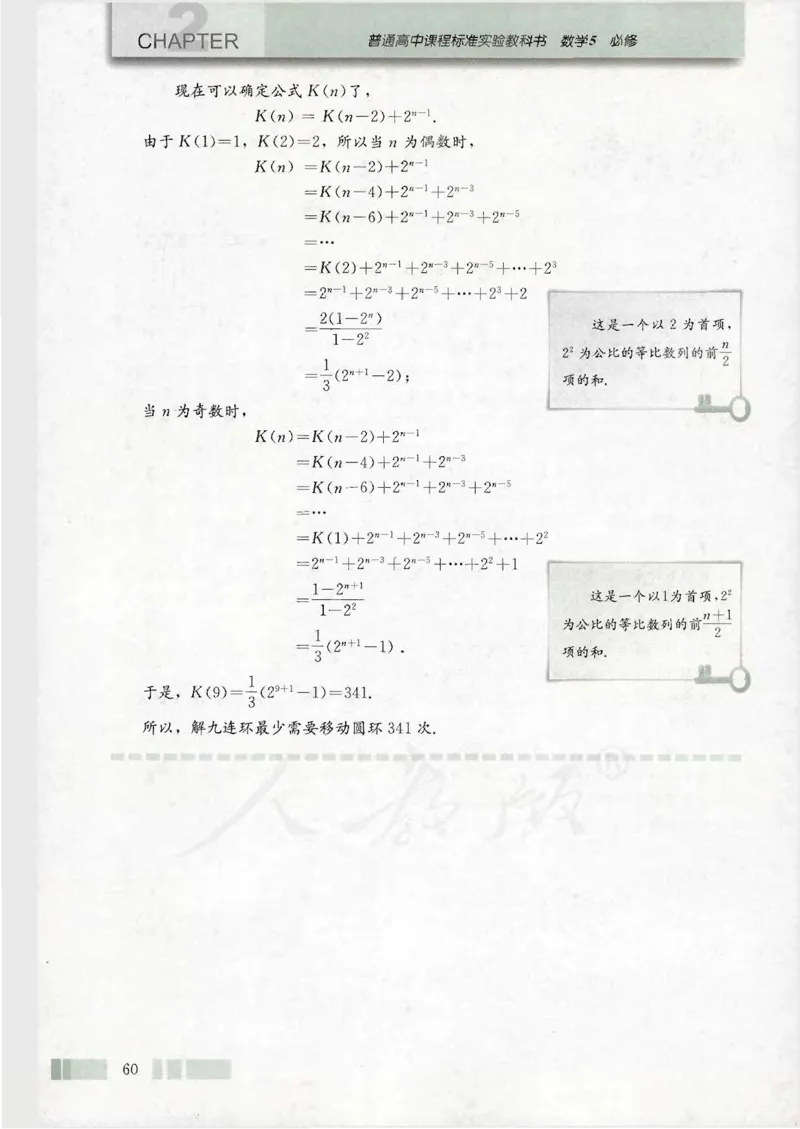 2
CHAPTER
普通高中课程标准实验教科书 数学5 必修
现在可以确定公式 K(n)了，
K(n) = K(n−2)+2ⁿ⁻¹.
由于 K(1)=1，K(2)=2，所以当 n 为偶数时，
K(n) =K(n−2)+2ⁿ⁻¹
=K(n−4)+2ⁿ⁻¹+2ⁿ⁻³
=K(n−6)+2ⁿ⁻¹+2ⁿ⁻³+2ⁿ⁻⁵
=…
=K(2)+2ⁿ⁻¹+2ⁿ⁻³+2ⁿ⁻⁵+…+2³
=2ⁿ⁻¹+2ⁿ⁻³+2ⁿ⁻⁵+…+2³+2
=2(1−2ⁿ)/(1−2²)
=1/3(2ⁿ⁺¹−2)；
这是一个以 2 为首项，
2² 为公比的等比数列的前n/2
项的和.
当 n 为奇数时，
K(n)=K(n−2)+2ⁿ⁻¹
=K(n−4)+2ⁿ⁻¹+2ⁿ⁻³
=K(n−6)+2ⁿ⁻¹+2ⁿ⁻³+2ⁿ⁻⁵
=…
=K(1)+2ⁿ⁻¹+2ⁿ⁻³+2ⁿ⁻⁵+…+2²
=2ⁿ⁻¹+2ⁿ⁻³+2ⁿ⁻⁵+…+2²+1
=(1−2ⁿ⁺¹)/(1−2²)
=1/3(2ⁿ⁺¹−1).
这是一个以1为首项，2²
为公比的等比数列的前(n+1)/2
项的和.
于是，K(9)=1/3(2⁹⁺¹−1)=341.
所以，解九连环最少需要移动圆环 341 次.
人教版®
60